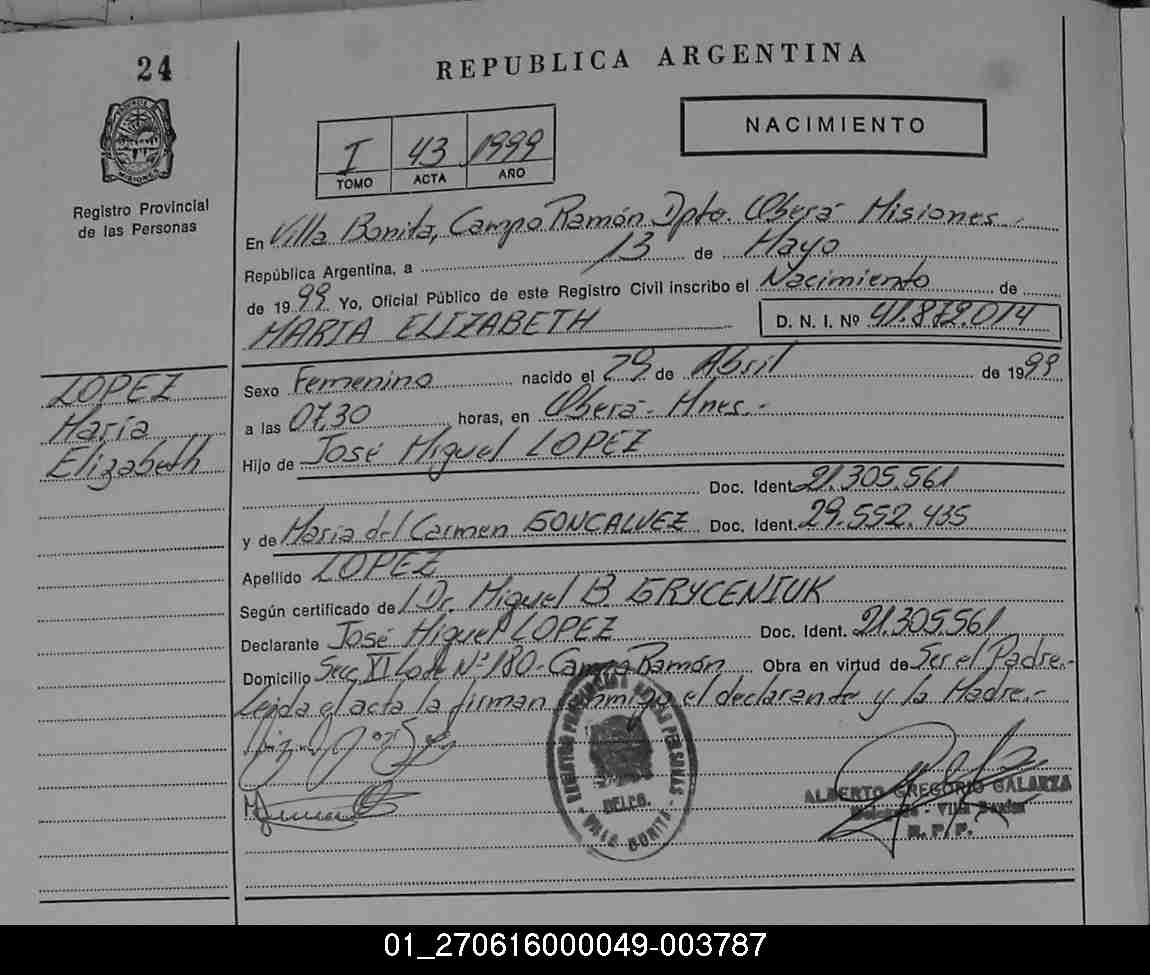 24
REPUBLICA ARGENTINA
PROVINCIA DE MISIONES
Registro Provincial
de las Personas
I 43 1999
TOMO ACTA AÑO
NACIMIENTO
En Villa Bonita, Campo Ramón Dpto. Oberá Misiones.-
República Argentina, a 13 de Mayo
de 1999 Yo, Oficial Público de este Registro Civil inscribo el Nacimiento de
MARIA ELIZABETH D. N. I. Nº 41.872.014
LOPEZ
Maria
Elizabeth
Sexo Femenino nacido el 29 de Abril de 1999
a las 07,30 horas, en Oberá - Mnes.-
Hijo de José Miguel LOPEZ
Doc. Ident. 21.305.561
y de Maria del Carmen GONCALVEZ Doc. Ident. 29.552.435
Apellido LOPEZ
Según certificado de Dr. Miguel B. GRYCENIUK
Declarante José Miguel LOPEZ Doc. Ident. 21.305.561
Domicilio Secc. XI Lote Nº 180 - Campo Ramón Obra en virtud de Ser el Padre.-
Leida el acta la firman conmigo el declarante y la Madre.-
REGISTRO PROVINCIAL DE LAS PERSONAS
DELEG.
- VILLA BONITA -
ALBERTO GREGORIO GALARZA
Delegado - Villa Bonita
R. P. P.
01_270616000049-003787